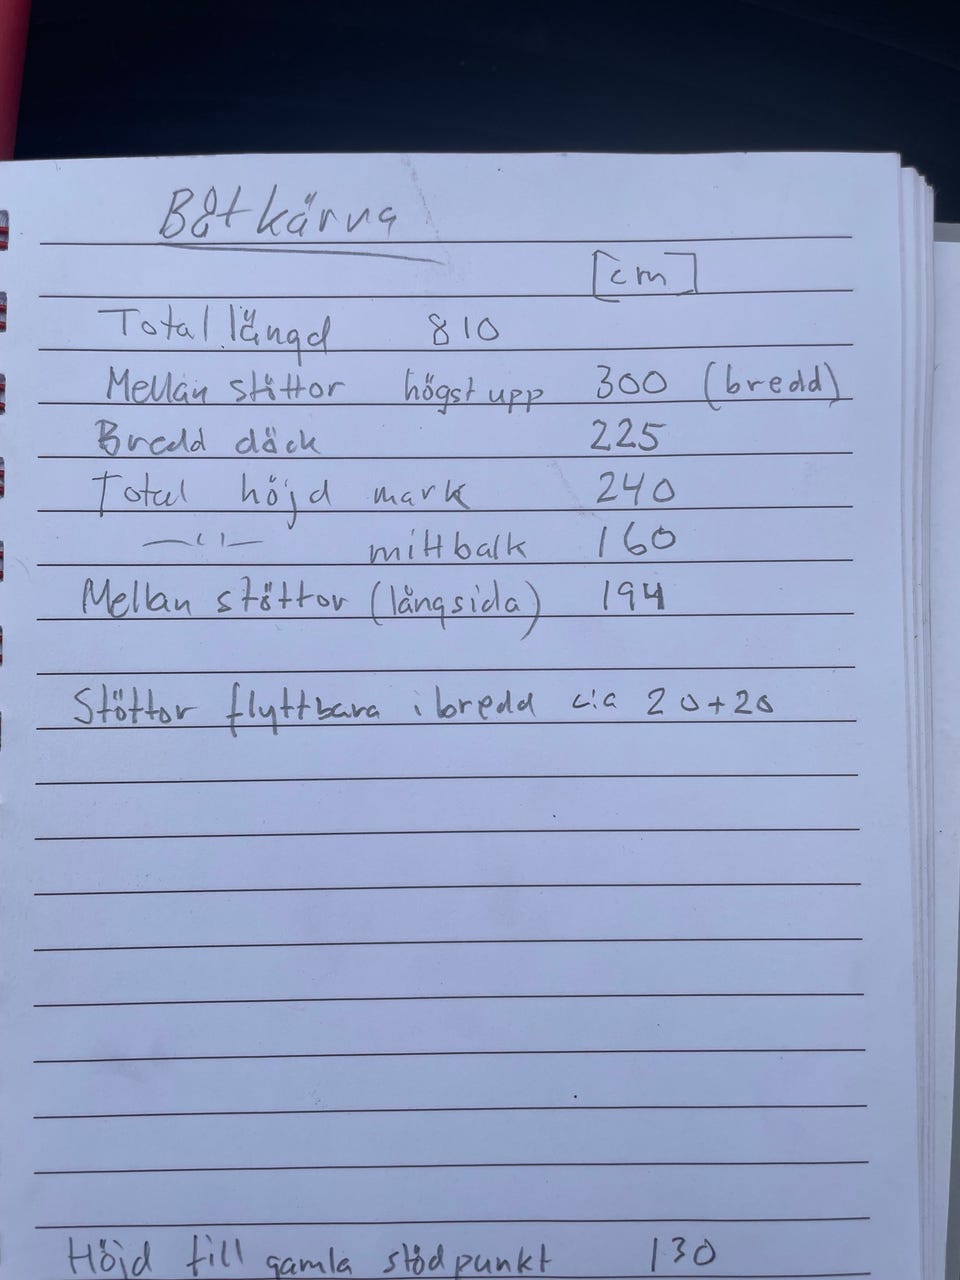 Båtkärva
[cm]
Total längd 810
Mellan stöttor högst upp 300 (bredd)
Bredd däck 225
Total höjd mark 240
—ıı— mittbalk 160
Mellan stöttor (långsida) 194
Stöttor flyttbara i bredd cia 20+20
Höjd till gamla stödpunkt 130